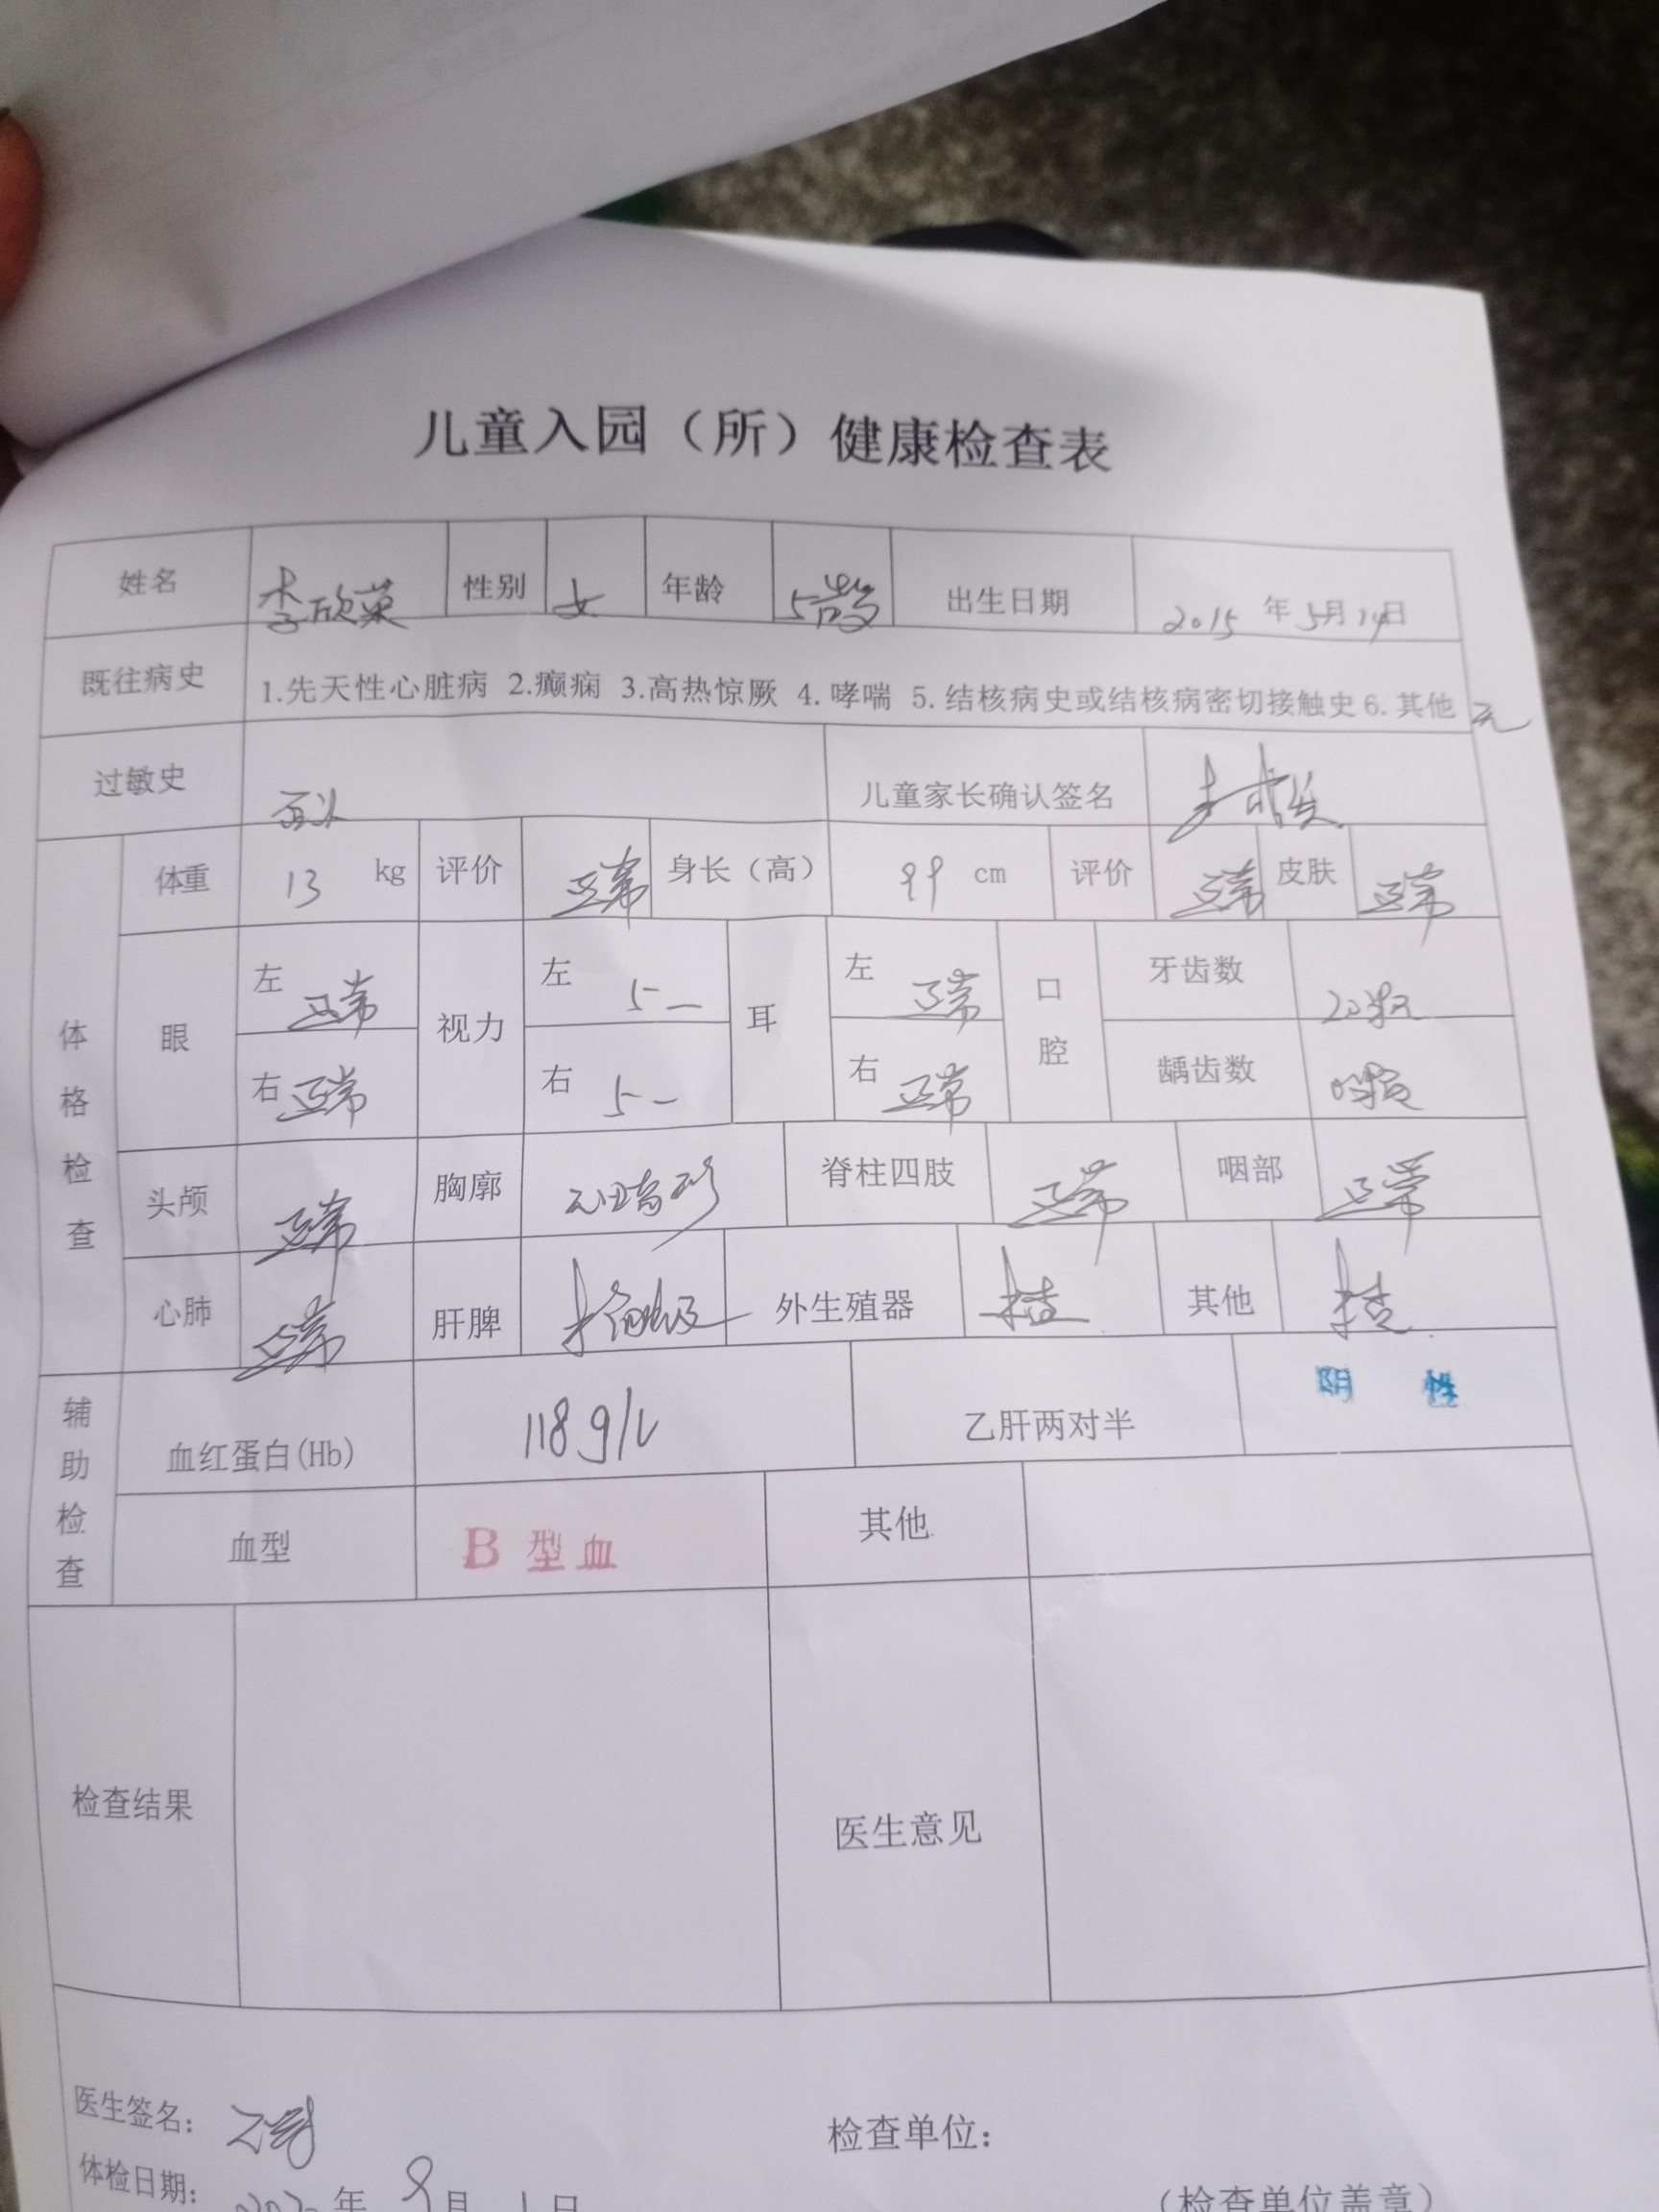 儿童入园（所）健康检查表
姓名 李欣 性别 女 年龄 5岁 出生日期 2015 年 5月 14日
既往病史 1.先天性心脏病 2.癫痫 3.高热惊厥 4.哮喘 5.结核病史或结核病密切接触史 6.其他 无
过敏史 儿童家长确认签名
体格检查
体重 13 kg 评价 正常 身长（高） 99 cm 评价 正常 皮肤 正常
眼 左 正常 视力 左 5- 耳 左 正常 口腔 牙齿数 20颗
右 正常 右 5- 右 正常 龋齿数 0颗
头颅 正常 胸廓 无畸形 脊柱四肢 正常 咽部 正常
心肺 正常 肝脾 未触及 外生殖器 未查 其他 未查
辅助检查
血红蛋白(Hb) 118g/L 乙肝两对半 阴 性
血型 B 型血 其他
检查结果 医生意见
医生签名： 检查单位：
体检日期： 年 9月 1日 （检查单位盖章）